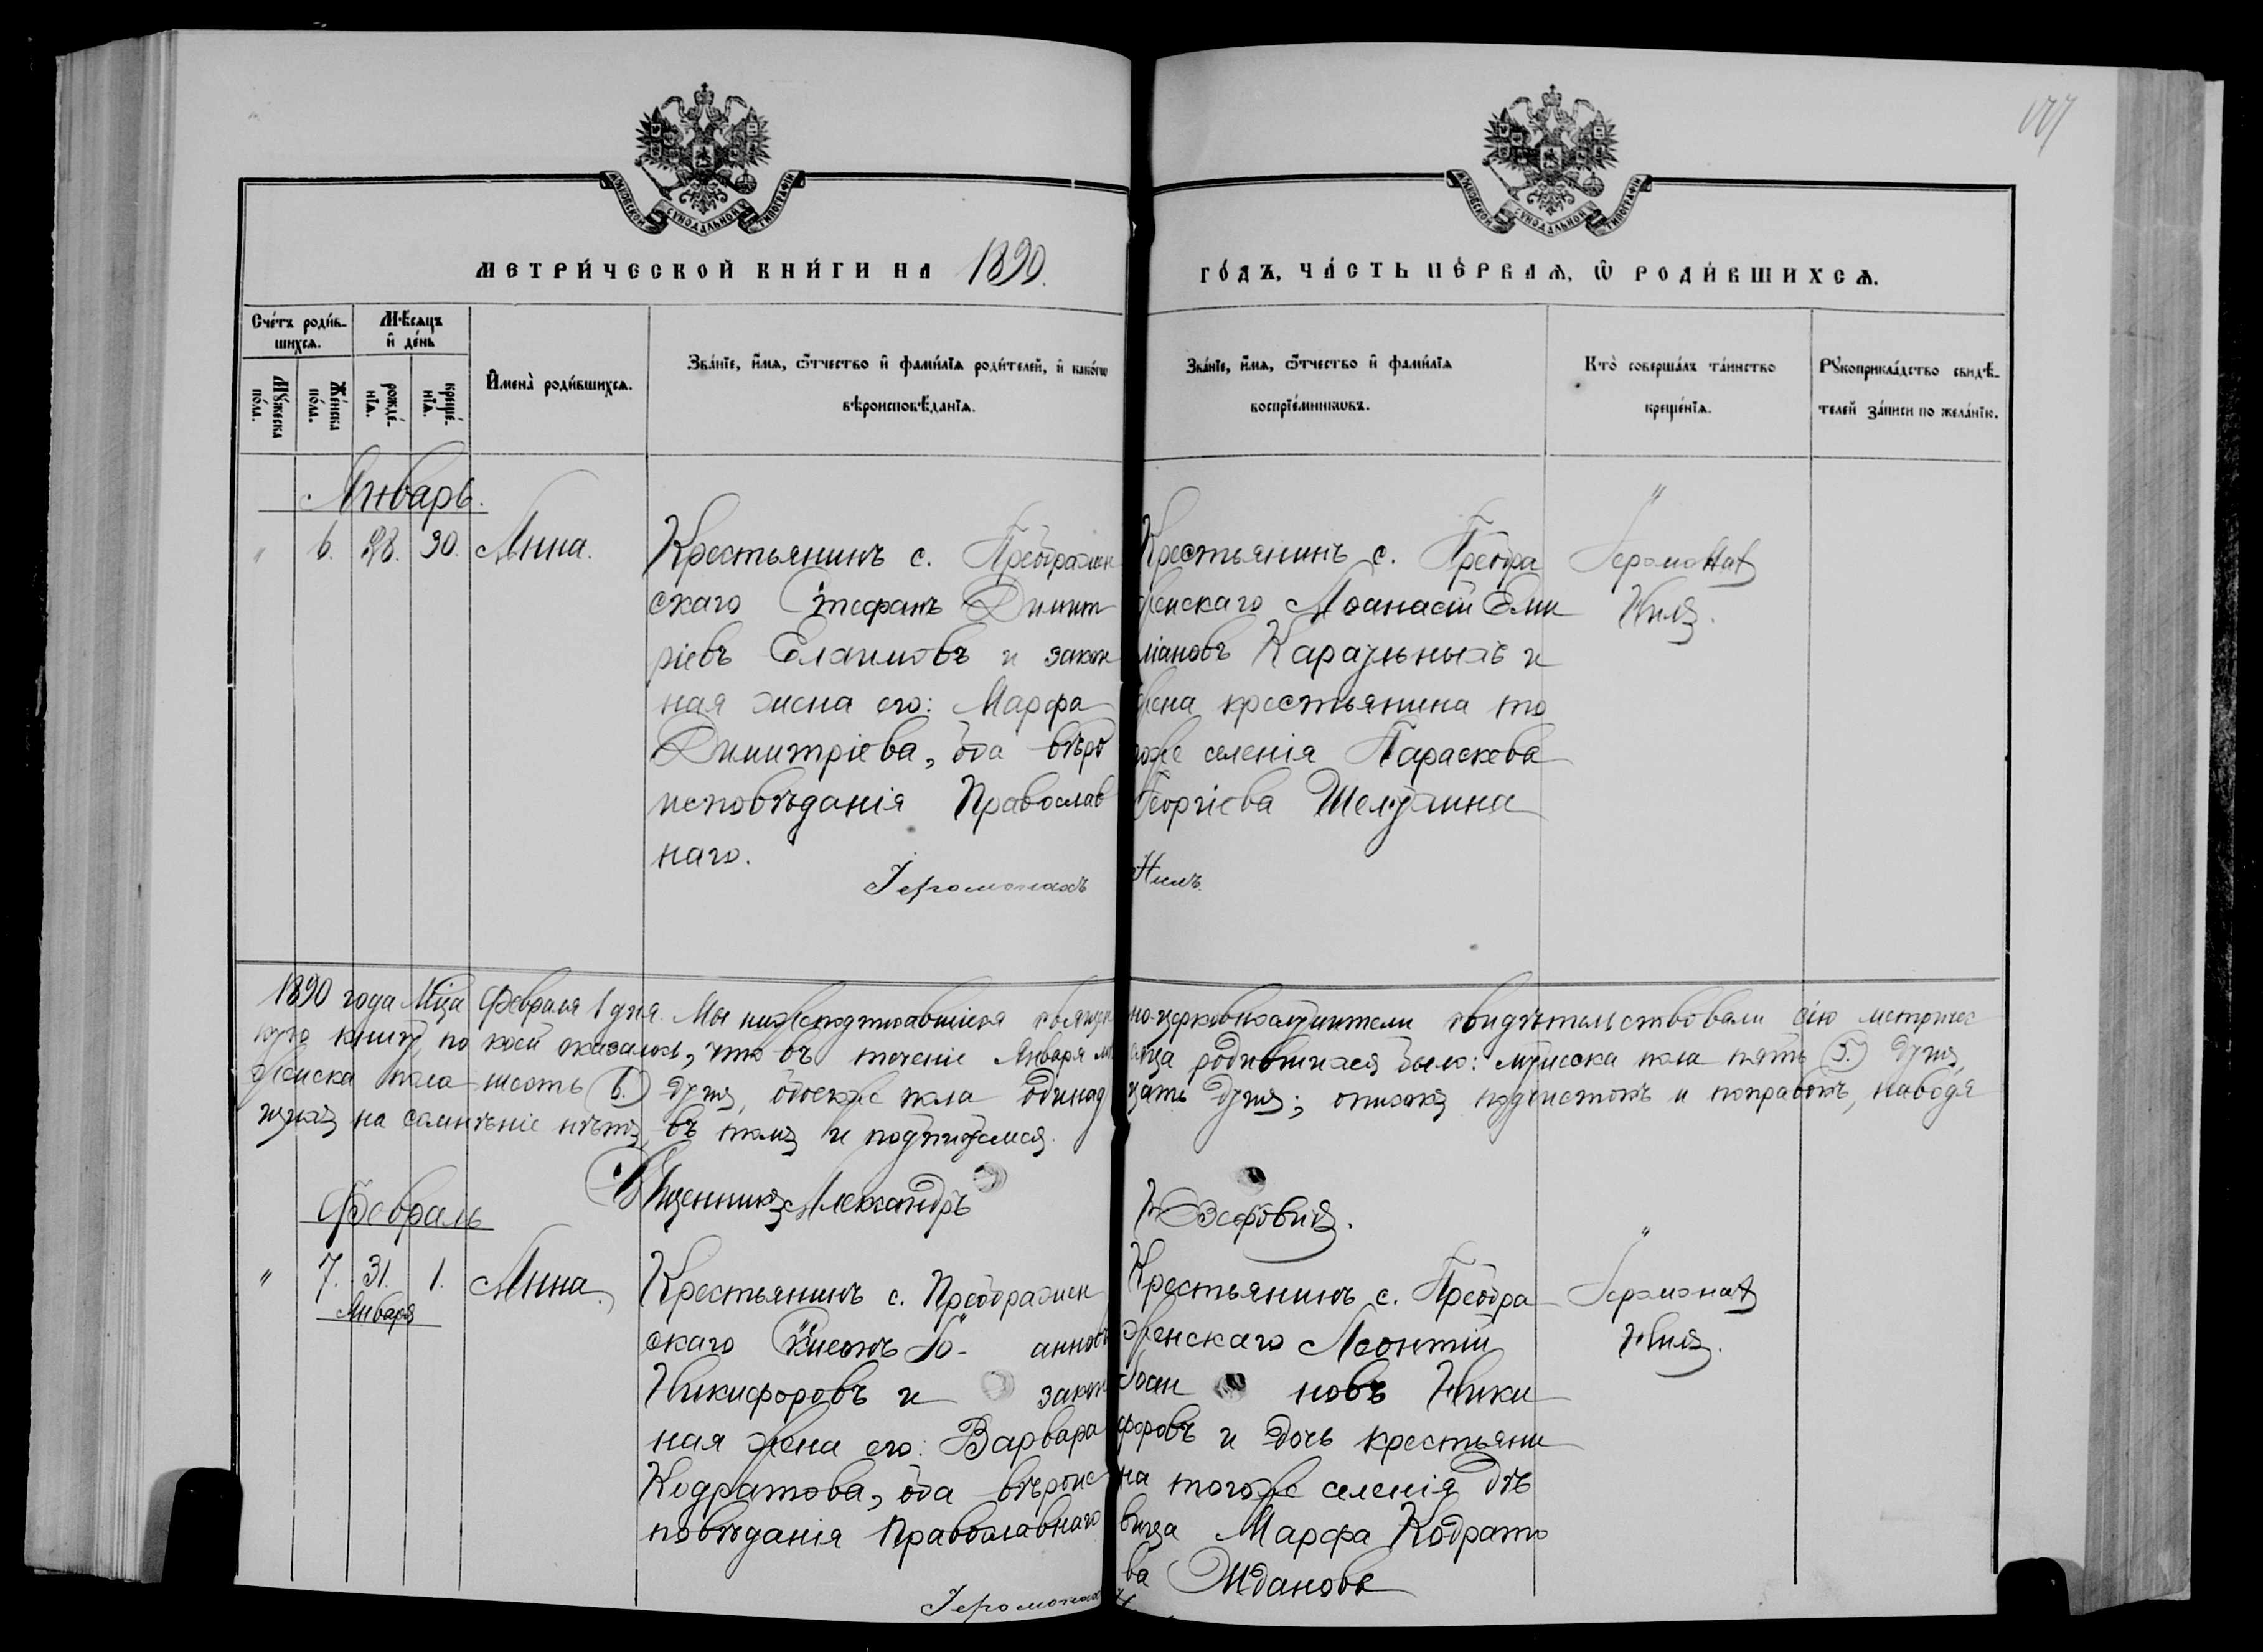 177
МОСКОВСКОЙ СѴНОДАЛЬНОЙ ТИПОГРАФІИ
МОСКОВСКОЙ СѴНОДАЛЬНОЙ ТИПОГРАФІИ
МЕТРИ́ЧЕСКОЙ КНИ́ГИ НА 1890.
ГО́ДЪ, ЧА́СТЬ ПЕ́РВАѦ, Ѿ РОДИ́ВШИХСѦ.
Сче́тъ роди́в-
шихсѧ.
Мѣ́сѧцъ
и҆ де́нь
Мꙋ́жеска
по́ла.
Же́нска
по́ла.
рожде́-
нїѧ.
креще́-
нїѧ.
И҆мена̀ роди́вшихсѧ.
Зва́нїе, и҆́мѧ, ѻ҆́тчество и҆ фами́лїѧ роди́телей, и҆ како́гѡ
вѣроисповѣ́данїѧ.
Зва́нїе, и҆́мѧ, ѻ҆́тчество и҆ фами́лїѧ
воспрїе́мникѡвъ.
Кто̀ соверша́лъ та́инство
креще́нїѧ.
Рꙋкоприкла́дство свидѣ́-
телей за́писи по жела́нїю.
Январь.
" 6. 28. 30. Анна.
Крестьянинъ с. Преображен
скаго Стефанъ Димит
ріевъ и закон
ная жена его: Марфа
Димитріева, оба вѣро
исповѣданія Православ
наго.
Крестьянинъ с. Преобра
женскаго Аѳанасій Еми
ліановъ Караульныхъ и
жена крестьянина то
гоже селенія Параскева
Георгіева Шелупина
Іеромонах
Нилъ.
Іеромонахъ Нилъ.
1890 года Мца Февраля 1 дня. Мы нижеподписавшіеся священно-церковнослужители свидѣтельствовали сію метричес
кую книгу, по коей оказалось, что въ теченіе Января мѣсяца родившихся было: мужеска пола пять (5.) душъ,
женска пола шесть (6.) душъ, обоегоже пола одинадцать душъ; описокъ подчистокъ и поправокъ, наводя
щихъ на сомнѣніе нѣтъ, въ томъ и подпишемся.
Священникъ Александръ
Февраль
" 7. 31. 1. Анна.
Января
Крестьянинъ с. Преображен
скаго Іо- анновъ
Никифоровъ и закон
ная жена его: Варвара
Кодратова, оба вѣроис
повѣданія Православнаго
Крестьянинъ с. Преобра
женскаго Леонтій
Іоан новъ Ники
форовъ и дочь крестьяни
на тогоже селенія дѣ
вица Марфа Кодрато
ва Жданова
Іеромонах
Нилъ.
Іеромонахъ